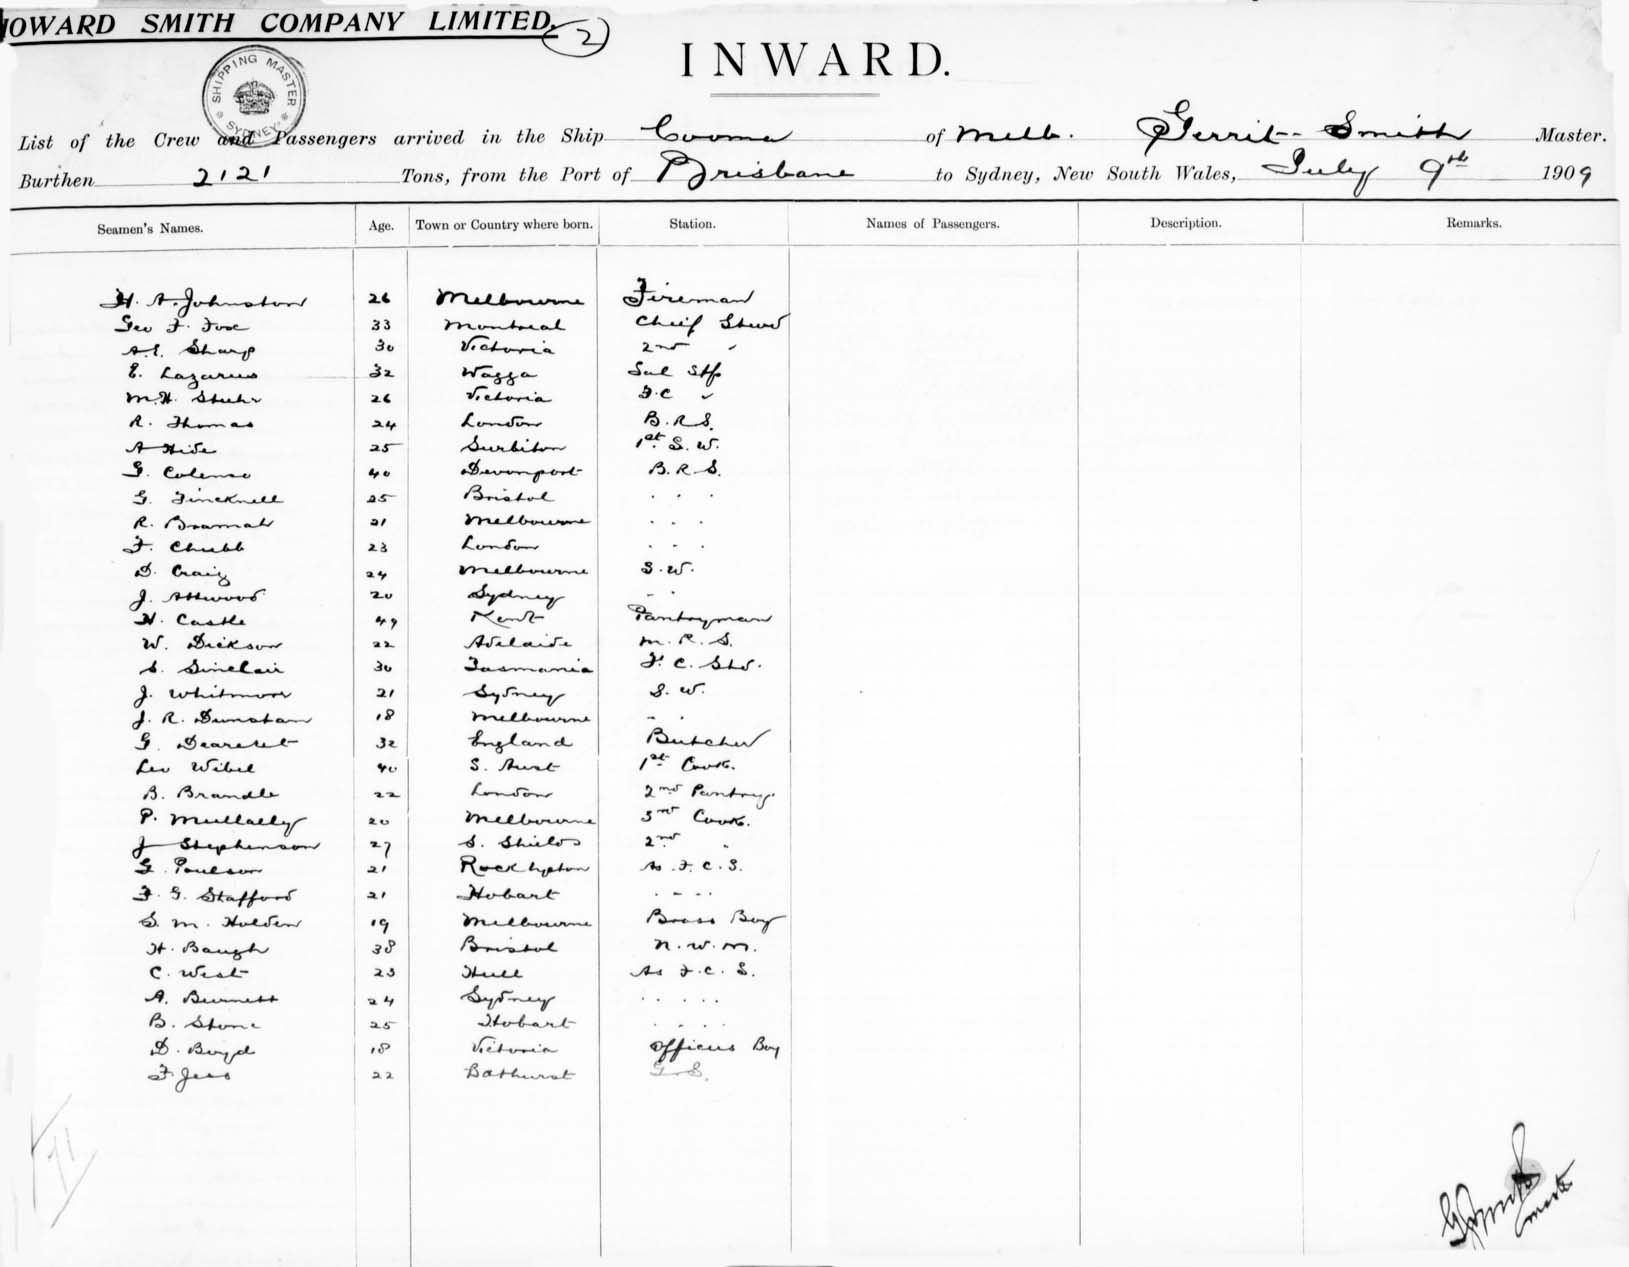 HOWARD SMITH COMPANY LIMITED.
2
INWARD.
SHIPPING MASTER SYDNEY
List of the Crew and Passengers arrived in the Ship Cooma of Melb. Gerrit Smith Master.
Burthen 2121 Tons, from the Port of Brisbane to Sydney, New South Wales, July 9th 1909
Seamen's Names. Age. Town or Country where born. Station. Names of Passengers. Description. Remarks.
H. A. Johnston 26 Melbourne Fireman
Geo F. Fox 33 Montreal Chief Stwd
A.E. Sharp 30 Victoria 2nd "
E. Lazarus 32 Wagga Sal Stp
M.H. Stuhr 26 Victoria F.C "
R. Thomas 24 London B.R.S.
A Hide 25 Surbiton 1st S.W.
G. Colenso 40 Devonport B.R.S.
G. Fincknell 25 Bristol . . .
R. Bramah 21 Melbourne . . .
F. Chubb 23 London . . .
D. Craig 24 Melbourne S.W.
J. Attwood 20 Sydney - .
H. Castle 49 Kent Pantryman
W. Dickson 22 Adelaide M.R.S.
S. Sinclair 30 Tasmania F.C. Std.
J. Whitmore 21 Sydney S.W.
J. R. Dunstan 18 Melbourne - .
G. 32 England Butcher
Leo Wibel 40 S. Aust 1st Cook.
B. Brandle 22 London 2nd Pantry.
P. Mullally 20 Melbourne 3rd Cook.
J Stephenson 27 S. Shields 2nd "
G. Poulson 21 Rockhpton As. F.C.S.
F. G. Stafford 21 Hobart . - . .
S. M. Holden 19 Melbourne Brass Boy
H. Baugh 38 Bristol N.W.M.
C. West 23 Hull As F.C.S.
A. Burnett 24 Sydney . . . . .
B. Stone 25 Hobart . . . .
D. Boyd 18 Victoria Officers Boy
F. Jess 22 Bathurst G.S.
71